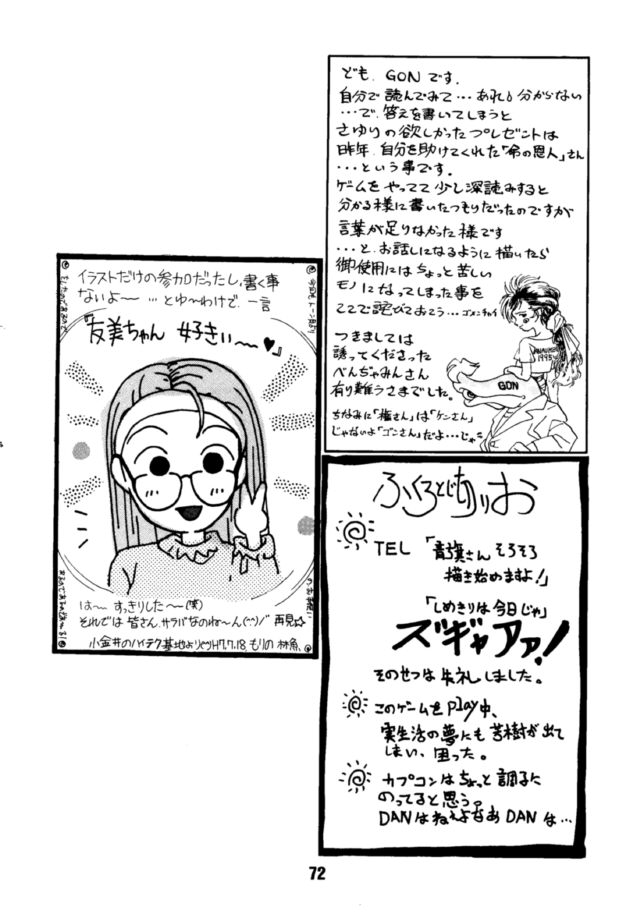 ども、GONです。
自分で読んでみて…あれ?分からない
…で、答えを書いてしまうと
さゆりの欲しかったプレゼントは
昨年、自分を助けてくれた「命の恩人」さん
…という事です。
ゲームをやってて少し深読みすると
分かる様に書いたつもりだったのですが
言葉が足りなかった様です
…と、お話しになるように描いたら
御使用にはちょっと苦しい
モノになってしまった事を
ここで詫びておこう…ゴメンネイ
つきましては
誘ってくださった
べんぢゃみんさん
有り難うさまでした。
ちなみに「権さん」は「ケンさん」
じゃないよ「ゴンさん」だよ…じゃ
1995
GON
イラストだけの参加だったし、書く事
ないよ〜…とゆ〜わけで、一言
『友美ちゃん 好きぃ〜〜♥』
は〜〜 すっきりした〜(笑)
それでは皆さん、サラバなのね〜ん(^^)/ 再見☆
小金井のハイテク基地より H7.7.18. もりの 林魚
ふくろとじきりお
TEL 「青旗さんそろそろ
描き始めますよ!」
「しめきりは今日じゃ」
ズギャアァ!
そのせつは失礼しました。
このゲームをplay中、
実生活の夢にも苦樹が出て
しまい、困った。
カプコンはちょっと調子に
のってると思う。
DANはねえよなあDANは…
72